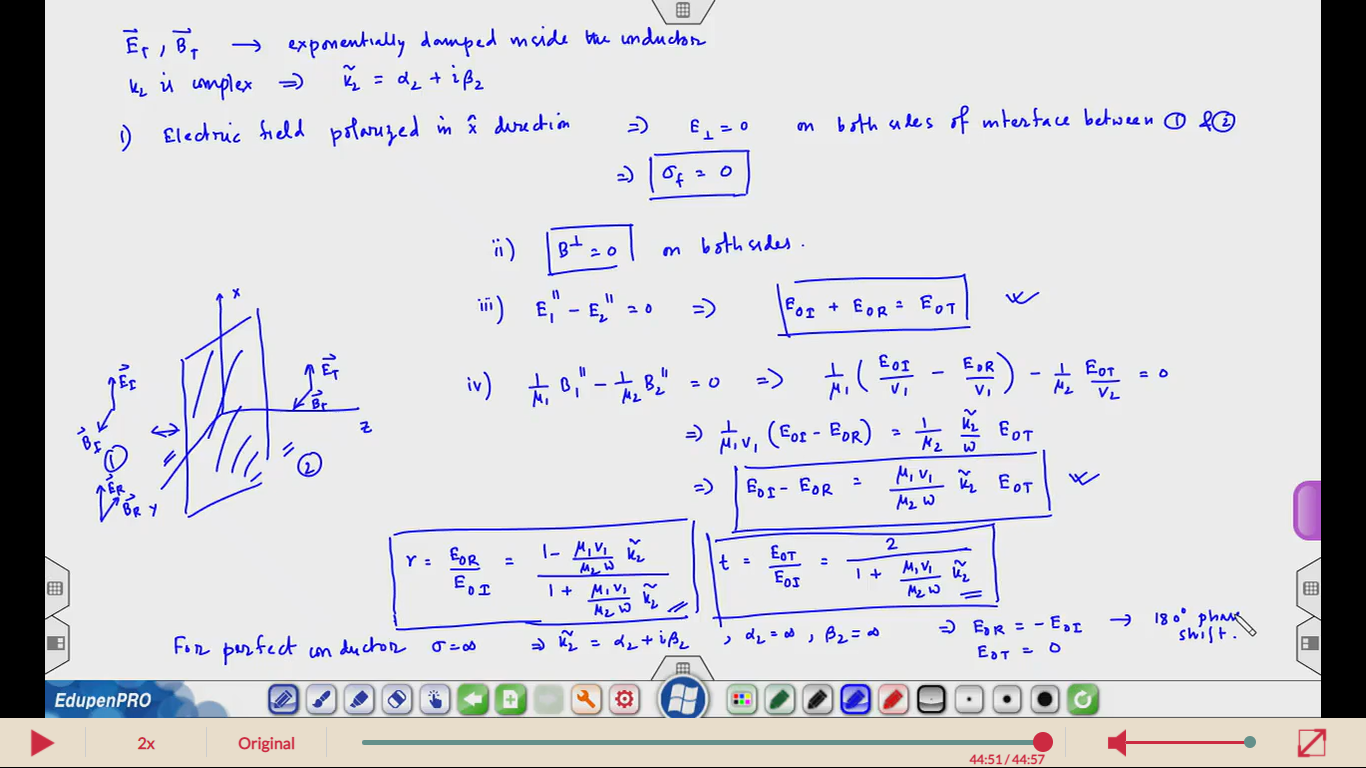 E⃗_T , B⃗_T → exponentially damped inside the conductor
k₂ is complex ⇒ k̃₂ = α₂ + iβ₂
i) Electric field polarized in x̂ direction ⇒ E_⊥ = 0 on both sides of interface between ① & ②
⇒ σ_f = 0
ii) B^⊥ = 0 on both sides.
iii) E₁^∥ − E₂^∥ = 0 ⇒ E_OI + E_OR = E_OT
iv) 1/μ₁ B₁^∥ − 1/μ₂ B₂^∥ = 0 ⇒ 1/μ₁ (E_OI/v₁ − E_OR/v₁) − 1/μ₂ E_OT/v₂ = 0
⇒ 1/μ₁v₁ (E_OI − E_OR) = 1/μ₂ k̃₂/ω E_OT
⇒ E_OI − E_OR = μ₁v₁/μ₂ω k̃₂ E_OT
X
E⃗_I
E⃗_T
B⃗_T
Z
B⃗_I
①
②
E⃗_R
B⃗_R Y
r = E_OR/E_OI = (1 − μ₁v₁/μ₂ω k̃₂)/(1 + μ₁v₁/μ₂ω k̃₂)
t = E_OT/E_OI = 2/(1 + μ₁v₁/μ₂ω k̃₂)
For perfect conductor σ = ∞ ⇒ k̃₂ = α₂ + iβ₂ , α₂ = ∞ , β₂ = ∞ ⇒ E_OR = − E_OI → 180° phase
shift.
E_OT = 0
EdupenPRO
2x
Original
44:51 / 44:57